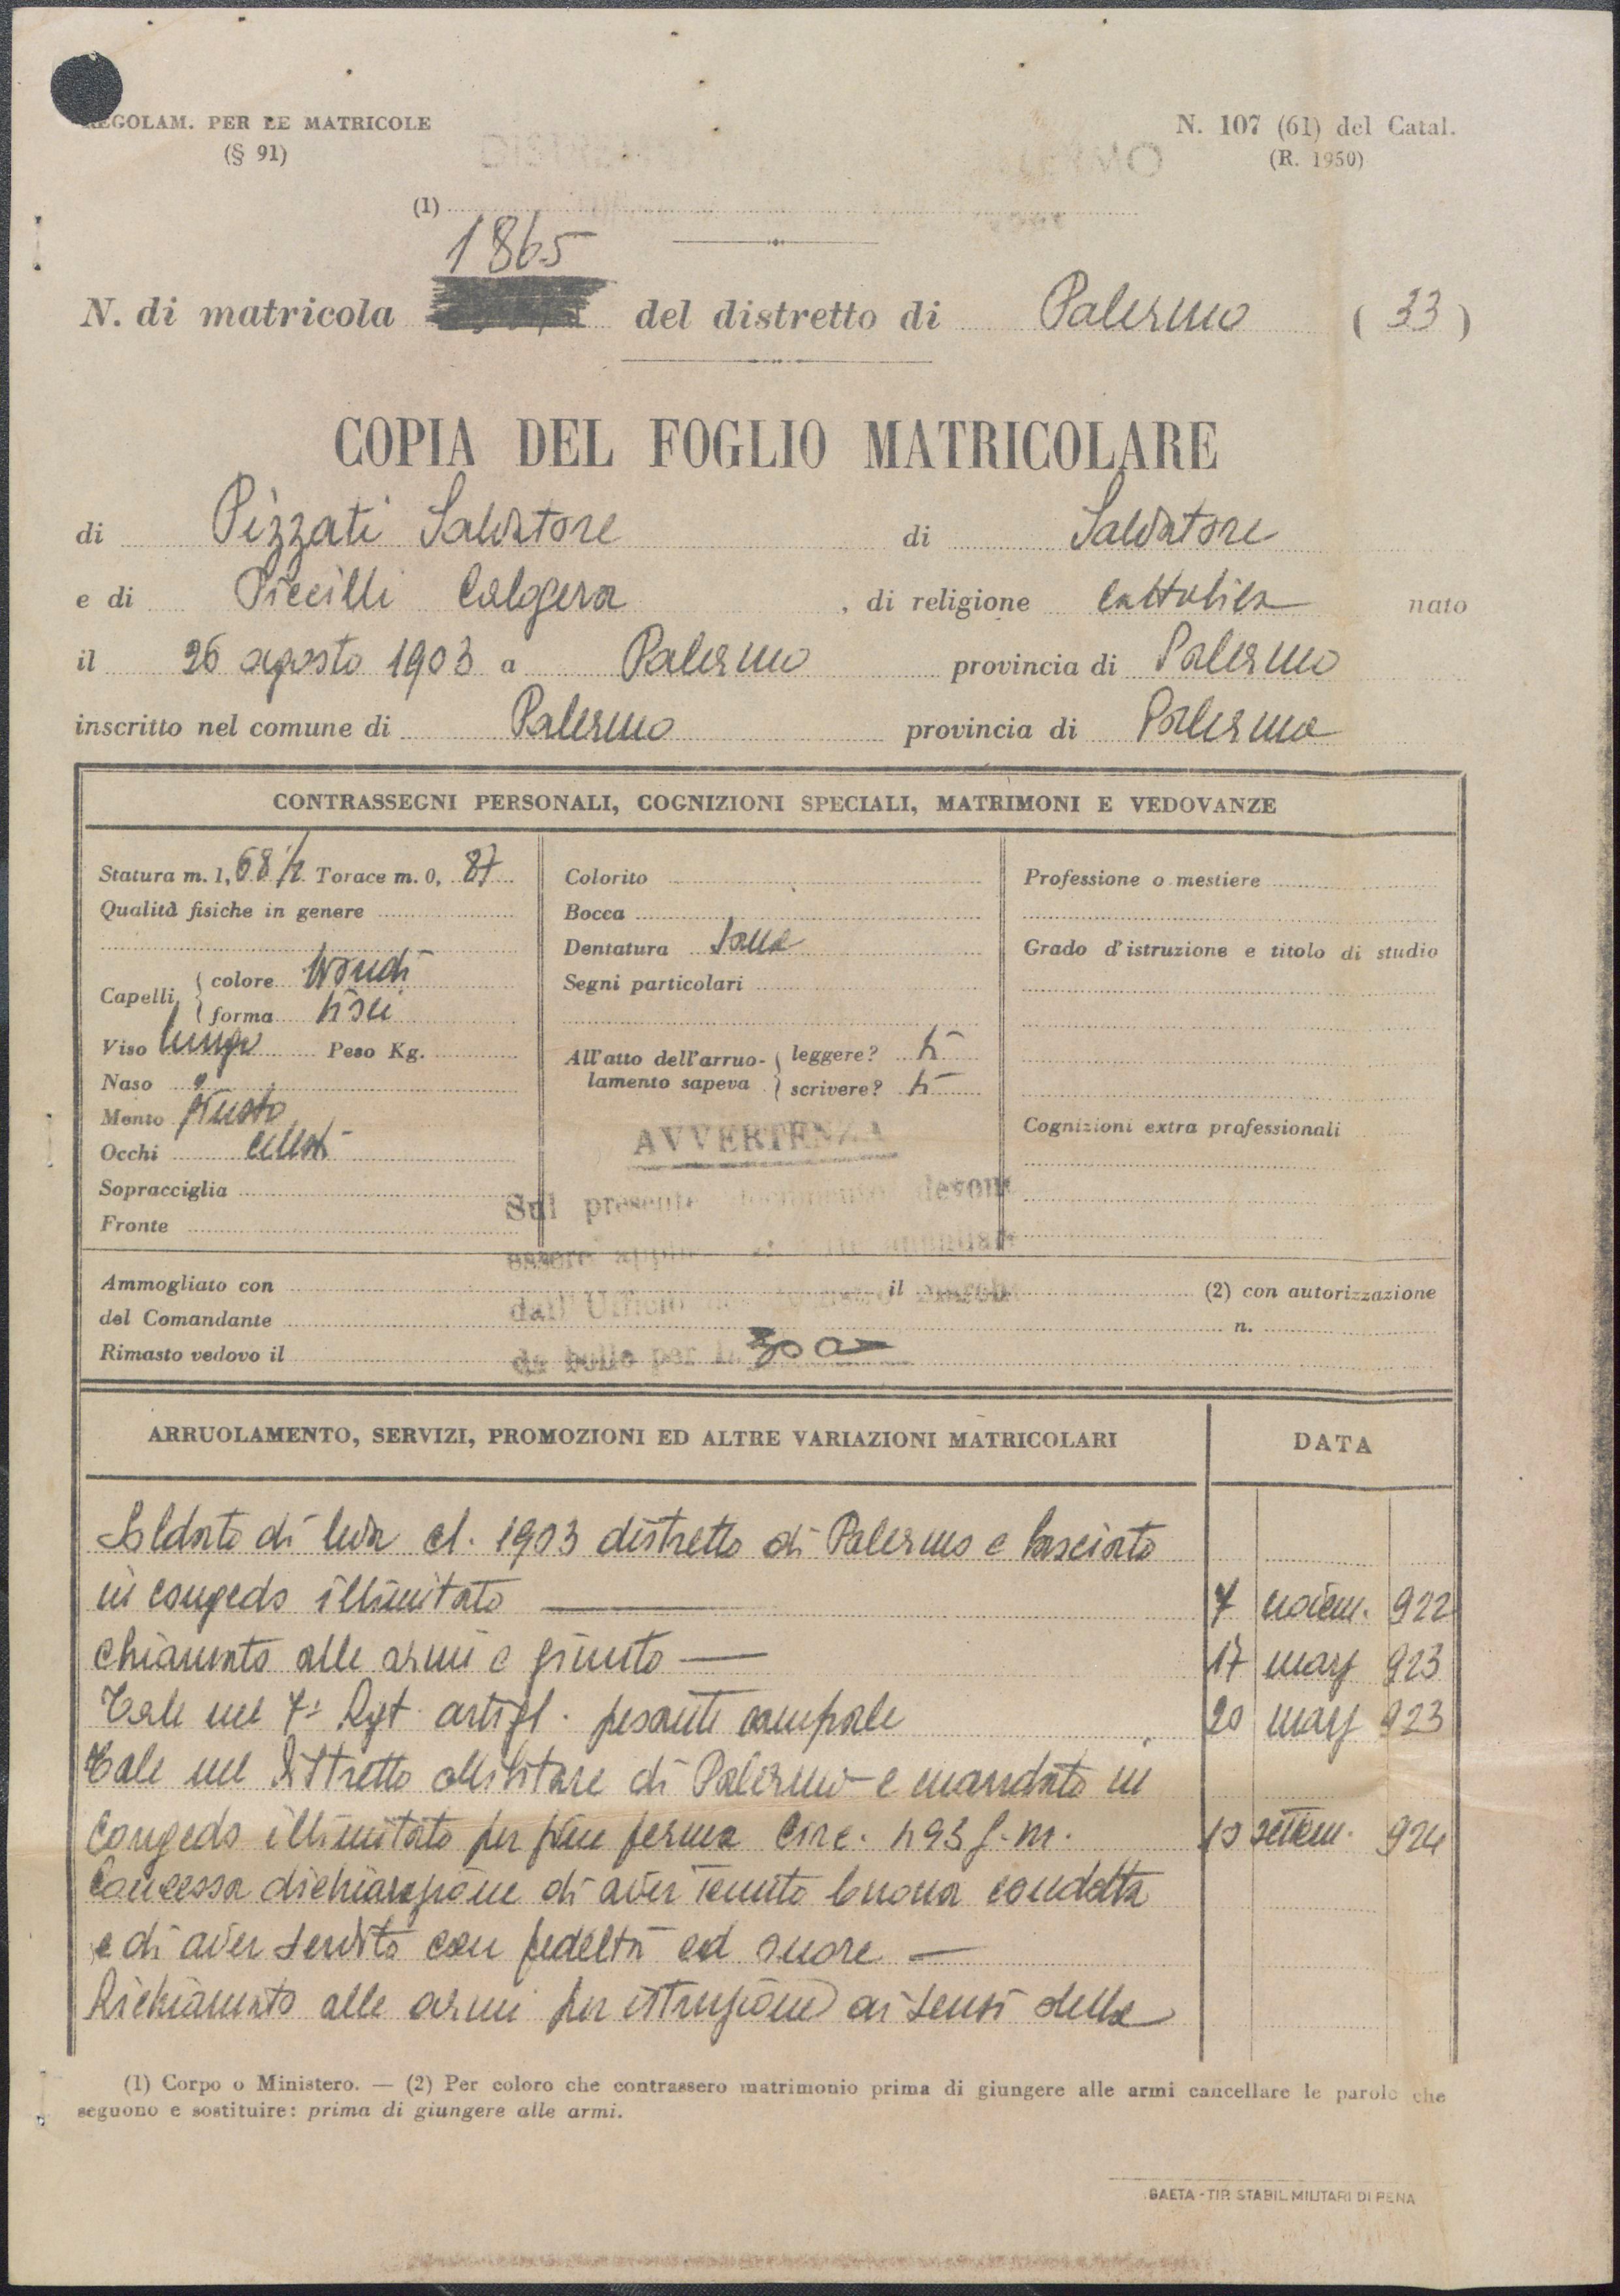 REGOLAM. PER LE MATRICOLE
(§ 91)
N. 107 (61) del Catal.
(R. 1950)
(1)
1865
N. di matricola del distretto di Palermo (33)
COPIA DEL FOGLIO MATRICOLARE
di Pizzati Salvatore di Salvatore
e di Piccilli Calogera, di religione cattolica nato
il 26 agosto 1903 a Palermo provincia di Palermo
inscritto nel comune di Palermo provincia di Palermo
CONTRASSEGNI PERSONALI, COGNIZIONI SPECIALI, MATRIMONI E VEDOVANZE
Statura m. 1,68 1/2 Torace m. 0, 87
Qualità fisiche in genere
Capelli colore biondi
forma lisci
Viso lungo Peso Kg.
Naso
Mento giusto
Occhi celesti
Sopracciglia
Fronte
Colorito
Bocca
Dentatura sana
Segni particolari
All'atto dell'arruo- leggere? si
lamento sapeva scrivere? si
Professione o mestiere
Grado d'istruzione e titolo di studio
Cognizioni extra professionali
AVVERTENZA
Sul presente documento devono
essere
dall'Ufficio marche
da bollo per L. 300
Ammogliato con il (2) con autorizzazione
del Comandante n.
Rimasto vedovo il
ARRUOLAMENTO, SERVIZI, PROMOZIONI ED ALTRE VARIAZIONI MATRICOLARI DATA
Soldato di leva cl. 1903 distretto di Palermo e lasciato
in congedo illimitato 7 novem. 922
Chiamato alle armi e giunto 17 magg 923
Tale nel 7º Rgt. artigl. pesante campale 20 magg 923
Tale nel Distretto Militare di Palermo e mandato in
congedo illimitato per fine ferma Circ. 493 g.m. 10 settem. 924
Concessa dichiarazione di aver tenuto buona condotta
e di aver servito con fedeltà ed onore
Richiamato alle armi per istruzione ai sensi della
(1) Corpo o Ministero. — (2) Per coloro che contrassero matrimonio prima di giungere alle armi cancellare le parole che
seguono e sostituire: prima di giungere alle armi.
GAETA - TIP. STABIL. MILITARI DI PENA